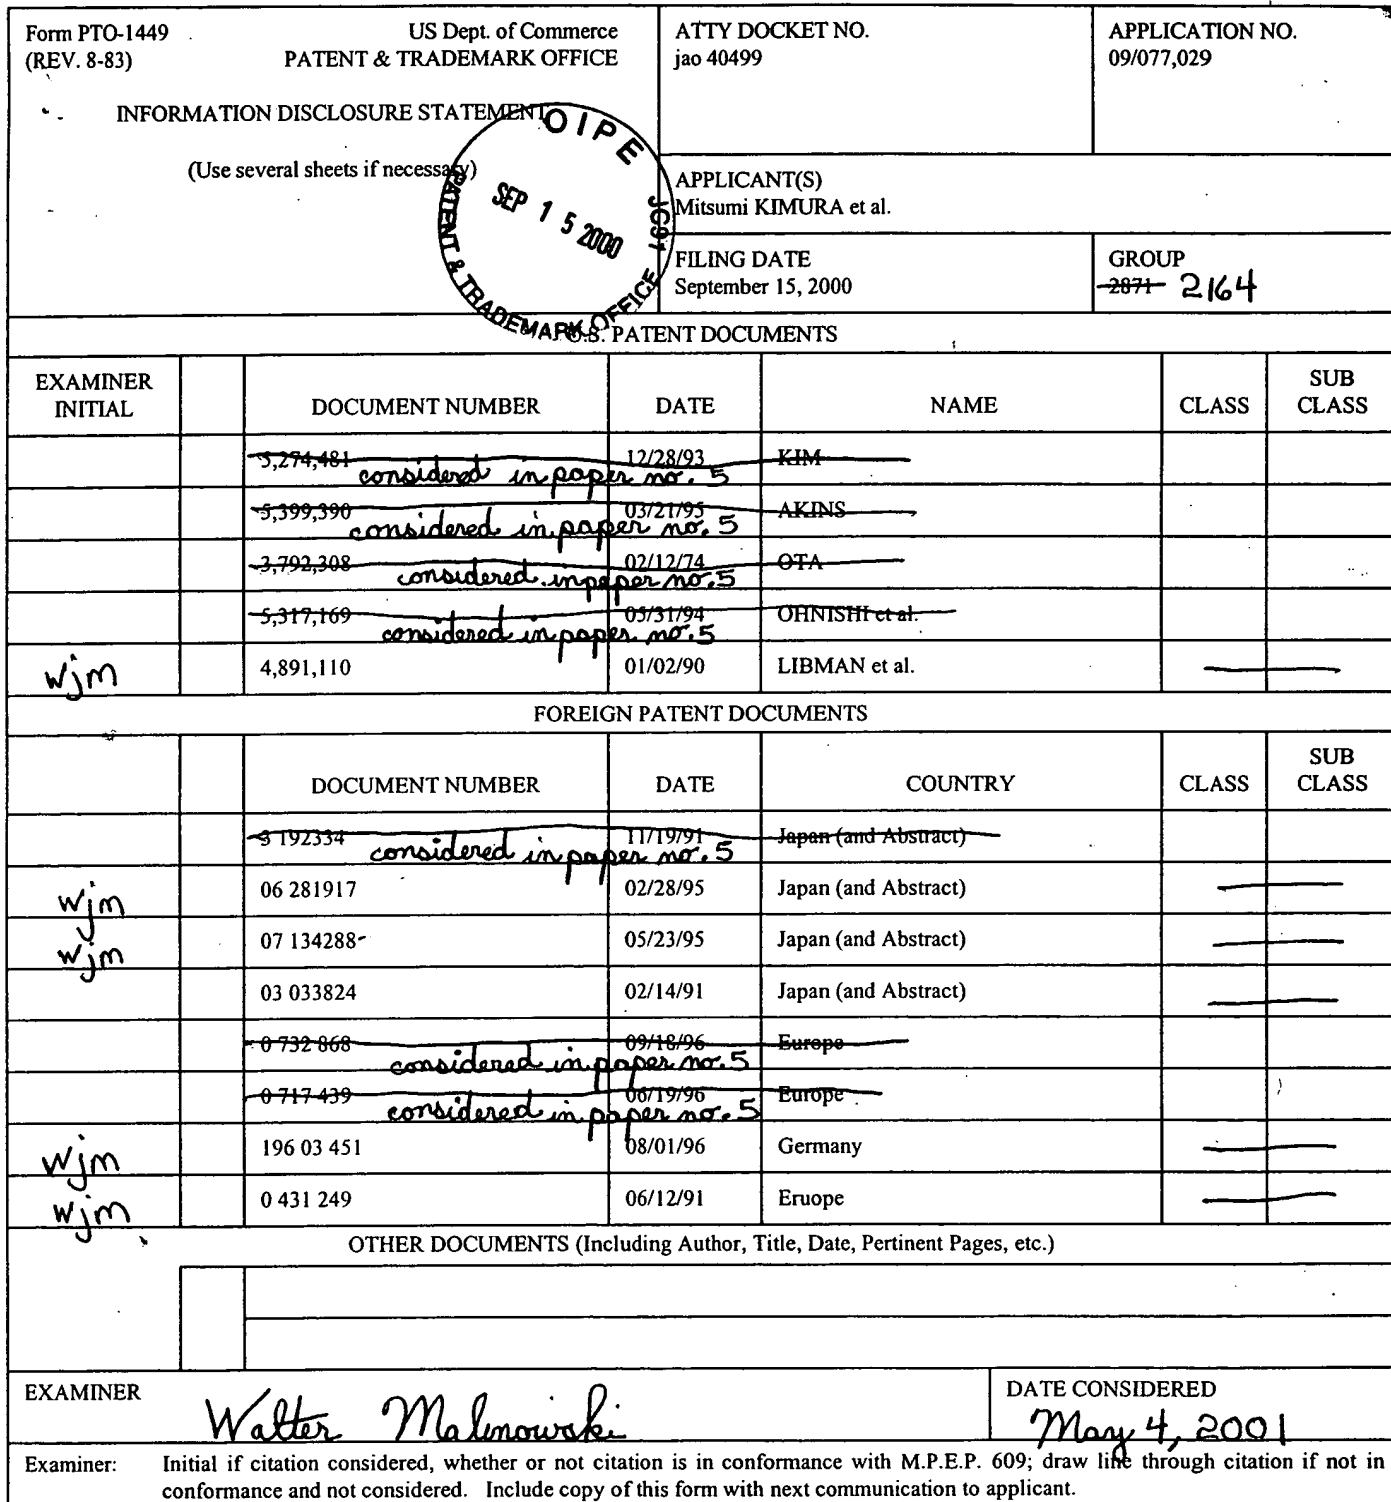 Form PTO-1449 US Dept. of Commerce
(REV. 8-83) PATENT & TRADEMARK OFFICE
INFORMATION DISCLOSURE STATEMENT
(Use several sheets if necessary)
OIPE JC91
SEP 15 2000
PATENT & TRADEMARK OFFICE
ATTY DOCKET NO.
jao 40499
APPLICATION NO.
09/077,029
APPLICANT(S)
Mitsumi KIMURA et al.
FILING DATE
September 15, 2000
GROUP
2871 2164
U.S. PATENT DOCUMENTS
EXAMINER INITIAL DOCUMENT NUMBER DATE NAME CLASS SUB CLASS
5,274,481 12/28/93 KIM
considered in paper no. 5
5,399,390 03/21/95 AKINS
considered in paper no. 5
3,792,308 02/12/74 OTA
considered in paper no. 5
5,317,169 05/31/94 OHNISHI et al.
considered in paper no. 5
wjm 4,891,110 01/02/90 LIBMAN et al.
FOREIGN PATENT DOCUMENTS
DOCUMENT NUMBER DATE COUNTRY CLASS SUB CLASS
3 192334 11/19/91 Japan (and Abstract)
considered in paper no. 5
wjm 06 281917 02/28/95 Japan (and Abstract)
wjm 07 134288 05/23/95 Japan (and Abstract)
03 033824 02/14/91 Japan (and Abstract)
0 732 868 09/18/96 Europe
considered in paper no. 5
0 717 439 06/19/96 Europe
considered in paper no. 5
wjm 196 03 451 08/01/96 Germany
wjm 0 431 249 06/12/91 Eruope
OTHER DOCUMENTS (Including Author, Title, Date, Pertinent Pages, etc.)
EXAMINER
Walter Malinowski
DATE CONSIDERED
May 4, 2001
Examiner: Initial if citation considered, whether or not citation is in conformance with M.P.E.P. 609; draw line through citation if not in
conformance and not considered. Include copy of this form with next communication to applicant.